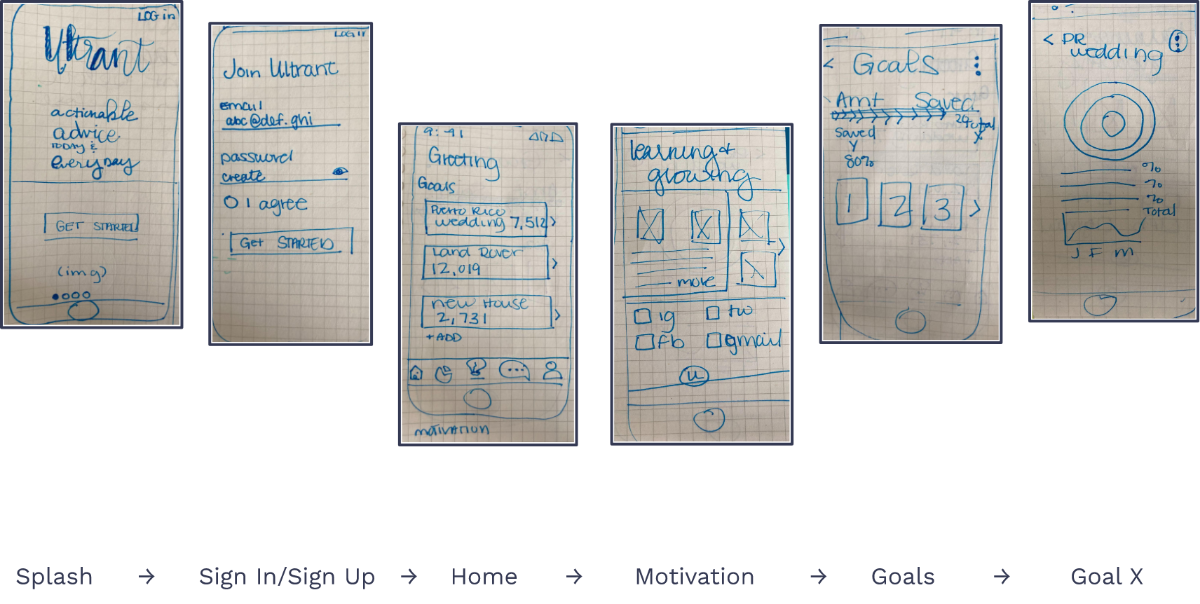 LOG in
Ultrant
actionable
advice
everyday
GET STARTED
(img)
LOG IN
Join Ultrant
email
abc@def.ghi
password
create
I agree
Get STARTED
9:41
Greeting
Goals
Puerto Rico
wedding 7,512
Land Rover
12,019
new House
2,731
+ADD
motivation
learning &
growing
more
ig
tw
fb
gmail
u
< Goals
Amt Saved
Saved
Y
80%
total
X
1 2 3 >
< PR
wedding
%
%
%
Total
J F M
Splash → Sign In/Sign Up → Home → Motivation → Goals → Goal X